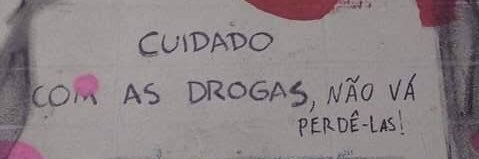 CUIDADO
COM AS DROGAS, NÃO VÁ
PERDÊ-LAS!